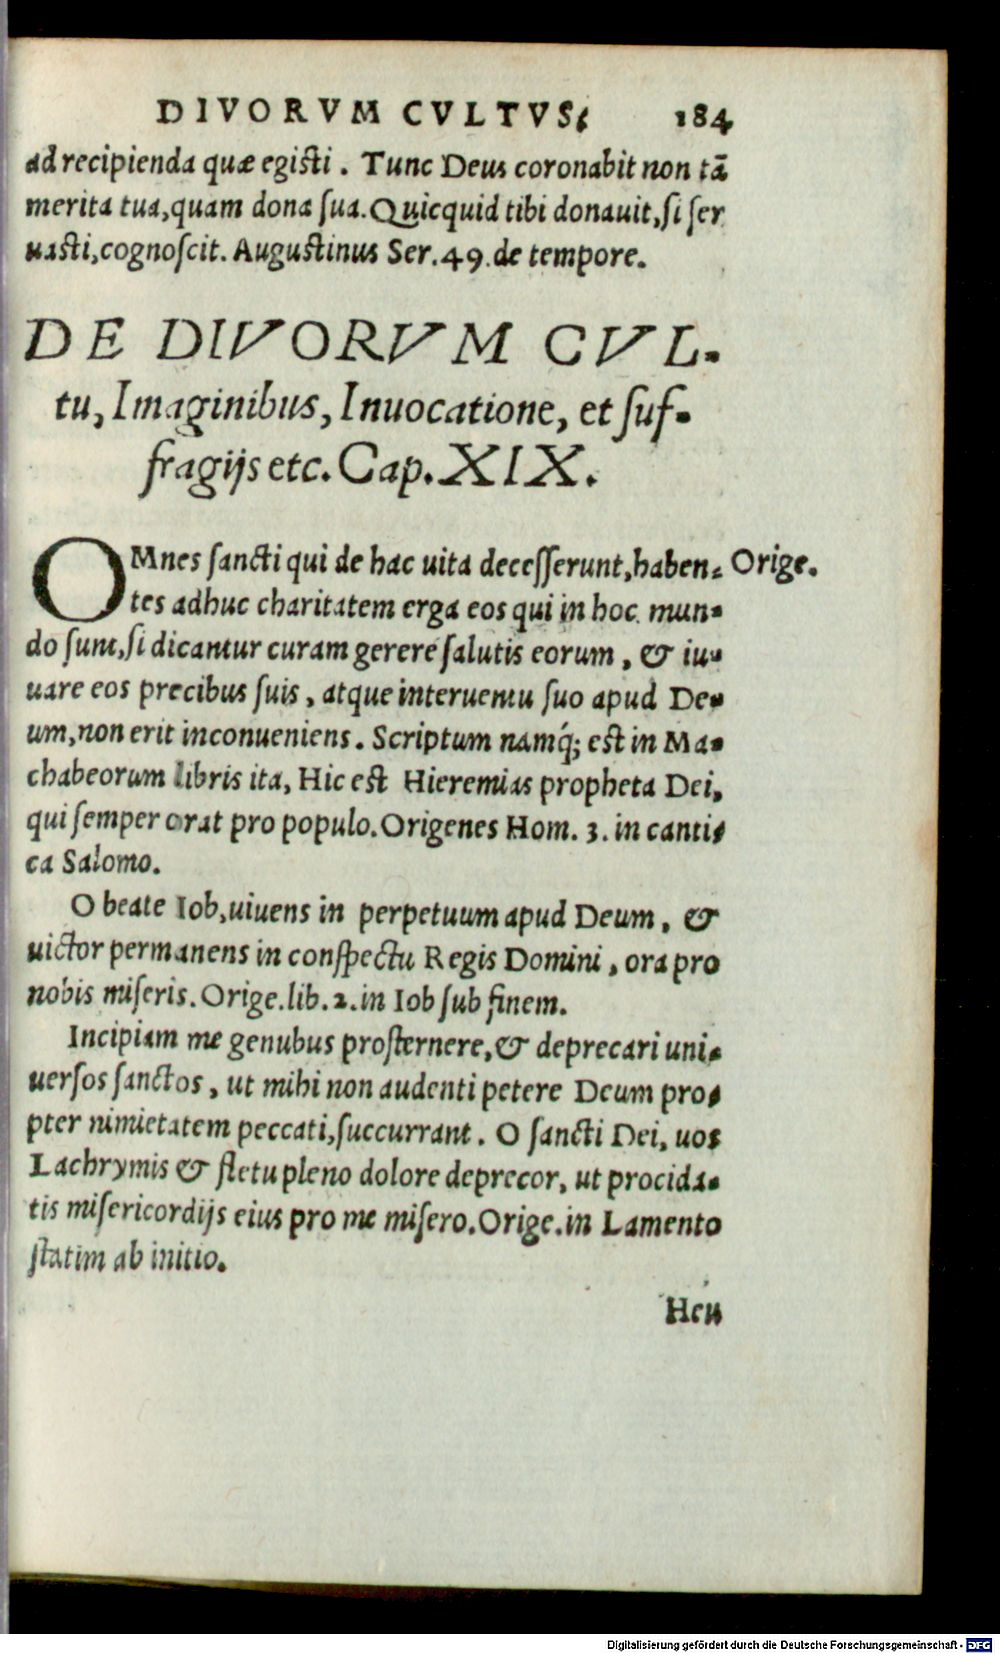 DIVORVM CVLTVS. 184
ad recipienda quæ egisti. Tunc Deus coronabit non tã
merita tua, quam dona sua. Quicquid tibi donauit, si ser
uasti, cognoscit. Augustinus Ser. 49. de tempore.
DE DIVORVM CVL-
tu, Imaginibus, Inuocatione, et suf-
fragijs etc. Cap. XIX.
OMnes sancti qui de hac uita decesserunt, haben- Orige.
tes adhuc charitatem erga eos qui in hoc mun-
do sunt, si dicantur curam gerere salutis eorum, & iu-
uare eos precibus suis, atque interuentu suo apud De-
um, non erit inconueniens. Scriptum namq́; est in Ma-
chabeorum libris ita, Hic est Hieremias propheta Dei,
qui semper orat pro populo. Origenes Hom. 3. in canti-
ca Salomo.
O beate Iob, uiuens in perpetuum apud Deum, &
uictor permanens in conspectu Regis Domini, ora pro
nobis miseris. Orige. lib. 2. in Iob sub finem.
Incipiam me genubus prosternere, & deprecari uni-
uersos sanctos, ut mihi non audenti petere Deum pro-
pter nimietatem peccati, succurrant. O sancti Dei, uos
Lachrymis & fletu pleno dolore deprecor, ut procida-
tis misericordijs eius pro me misero. Orige. in Lamento
statim ab initio.
Heu
Digitalisierung gefördert durch die Deutsche Forschungsgemeinschaft - DFG